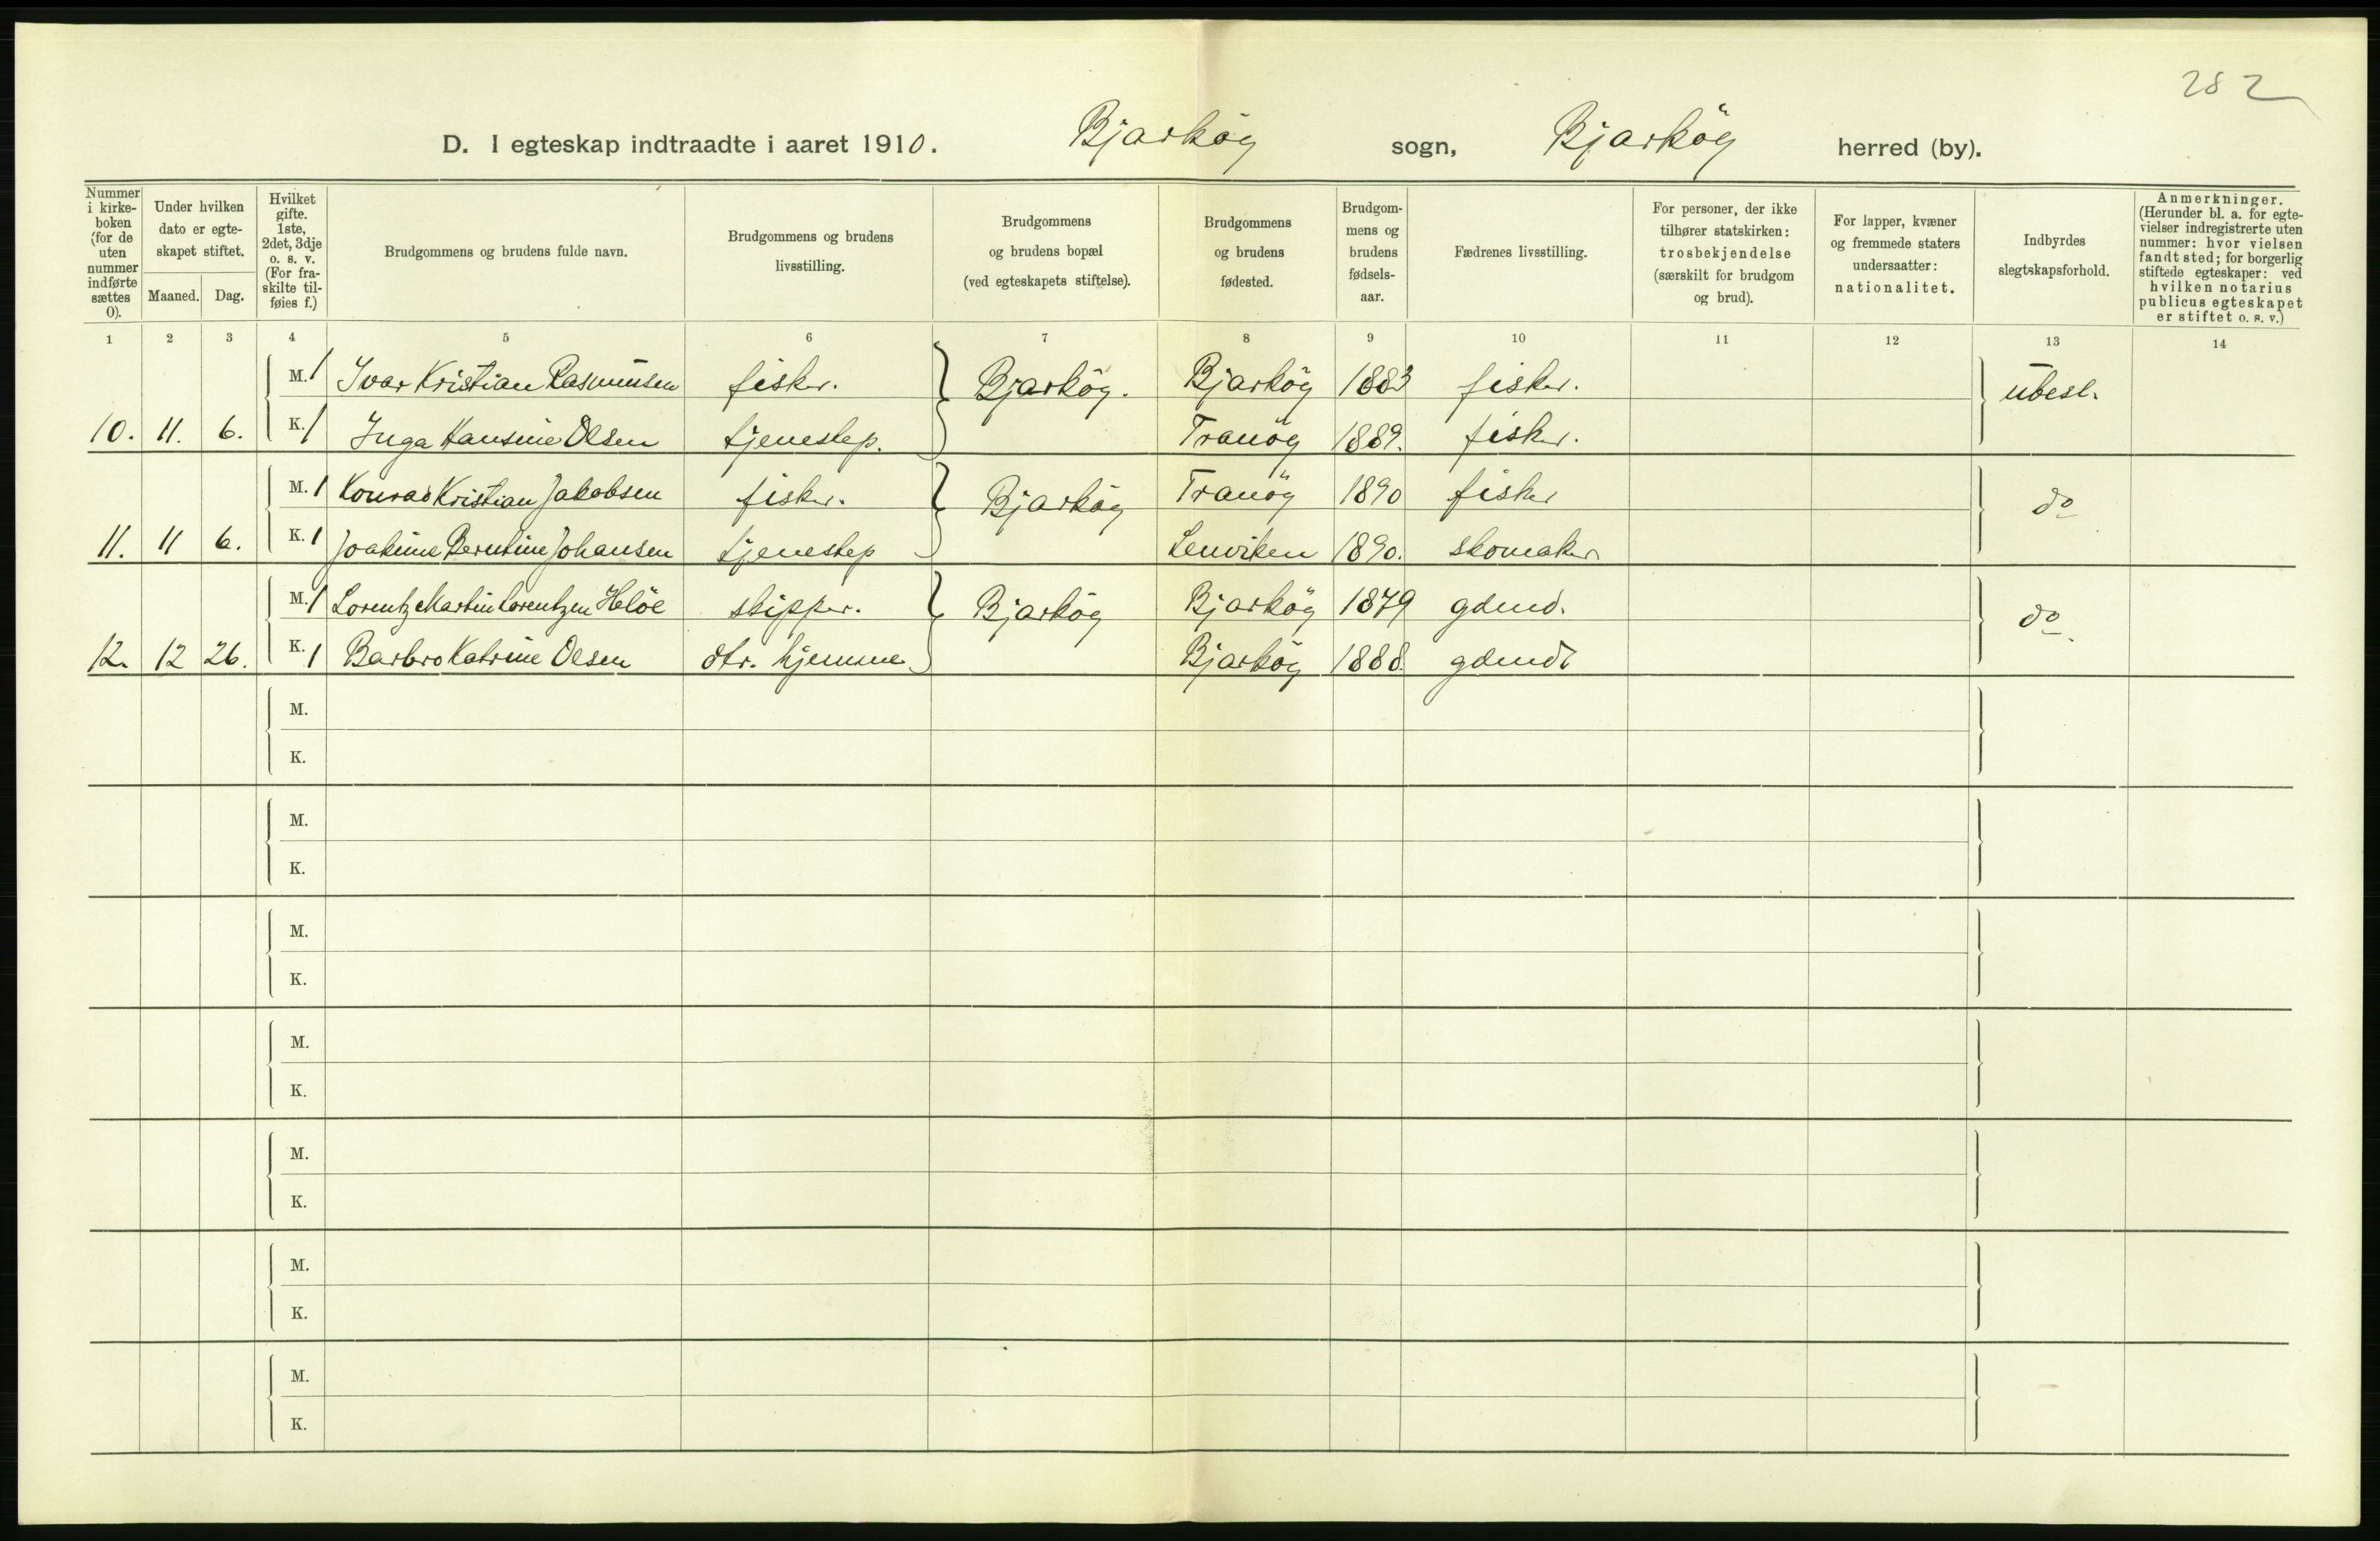 282
D. I egteskap indtraadte i aaret 1910. Bjarköy sogn, Bjarköy herred (by).
Nummer i kirke-boken (for de uten nummer indførte sættes 0).
Under hvilken dato er egte-skapet stiftet.
Maaned. Dag.
Hvilket gifte. 1ste, 2det, 3dje o. s. v. (For fra-skilte til-føies f.)
Brudgommens og brudens fulde navn.
Brudgommens og brudens livsstilling.
Brudgommens og brudens bopæl (ved egteskapets stiftelse).
Brudgommens og brudens fødested.
Brudgom-mens og brudens fødsels-aar.
Fædrenes livsstilling.
For personer, der ikke tilhører statskirken: trosbekjendelse (særskilt for brudgom og brud).
For lapper, kvæner og fremmede staters undersaatter: nationalitet.
Indbyrdes slegtskapsforhold.
Anmerkninger. (Herunder bl. a. for egte-vielser indregistrerte uten nummer: hvor vielsen fandt sted; for borgerlig stiftede egteskaper: ved hvilken notarius publicus egteskapet er stiftet o. s. v.)
1 2 3 4 5 6 7 8 9 10 11 12 13 14
M. 1 Ivar Kristian Rasmussen fisker. Bjarköy. Bjarköy 1883 fisker. ubesl.
10. 11. 6. K. 1 Inga Hansine Olsen tjenestep. Tranöy 1889. fisker.
M. 1 Konrad Kristian Jakobsen fisker. Bjarköy Tranöy 1890 fisker do
11. 11 6. K. 1 Joakime Berntine Johansen tjenestep Lenviken 1890. skomaker
M. 1 Lorentz Martin Lorentzen Helöe skipper. Bjarköy Bjarköy 1879 gdmd. do.
12. 12 26. K. 1 Barbro Katrine Olsen dtr. hjemme. Bjarköy 1888. gdmd.
M.
K.
M.
K.
M.
K.
M.
K.
M.
K.
M.
K.
M.
K.